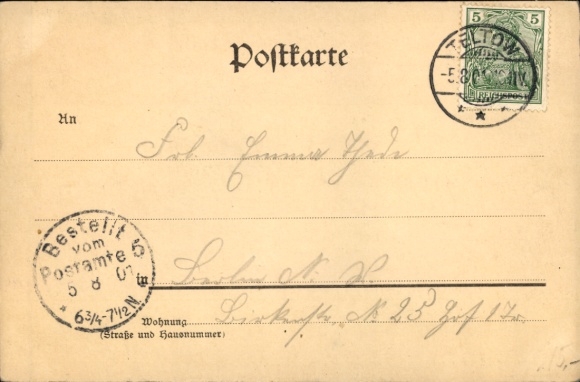 Postkarte
5 5
REICHSPOST
TELTOW
-5.8.01
N.
An
Frl. Emma Thede
Bestellt
vom
Postamte 5
5 8 01
6 3/4-7 1/2 N.
in
Berlin N.
Wohnung
(Straße und Hausnummer)
Birkenstr. N 25 Hof 1 Tr.